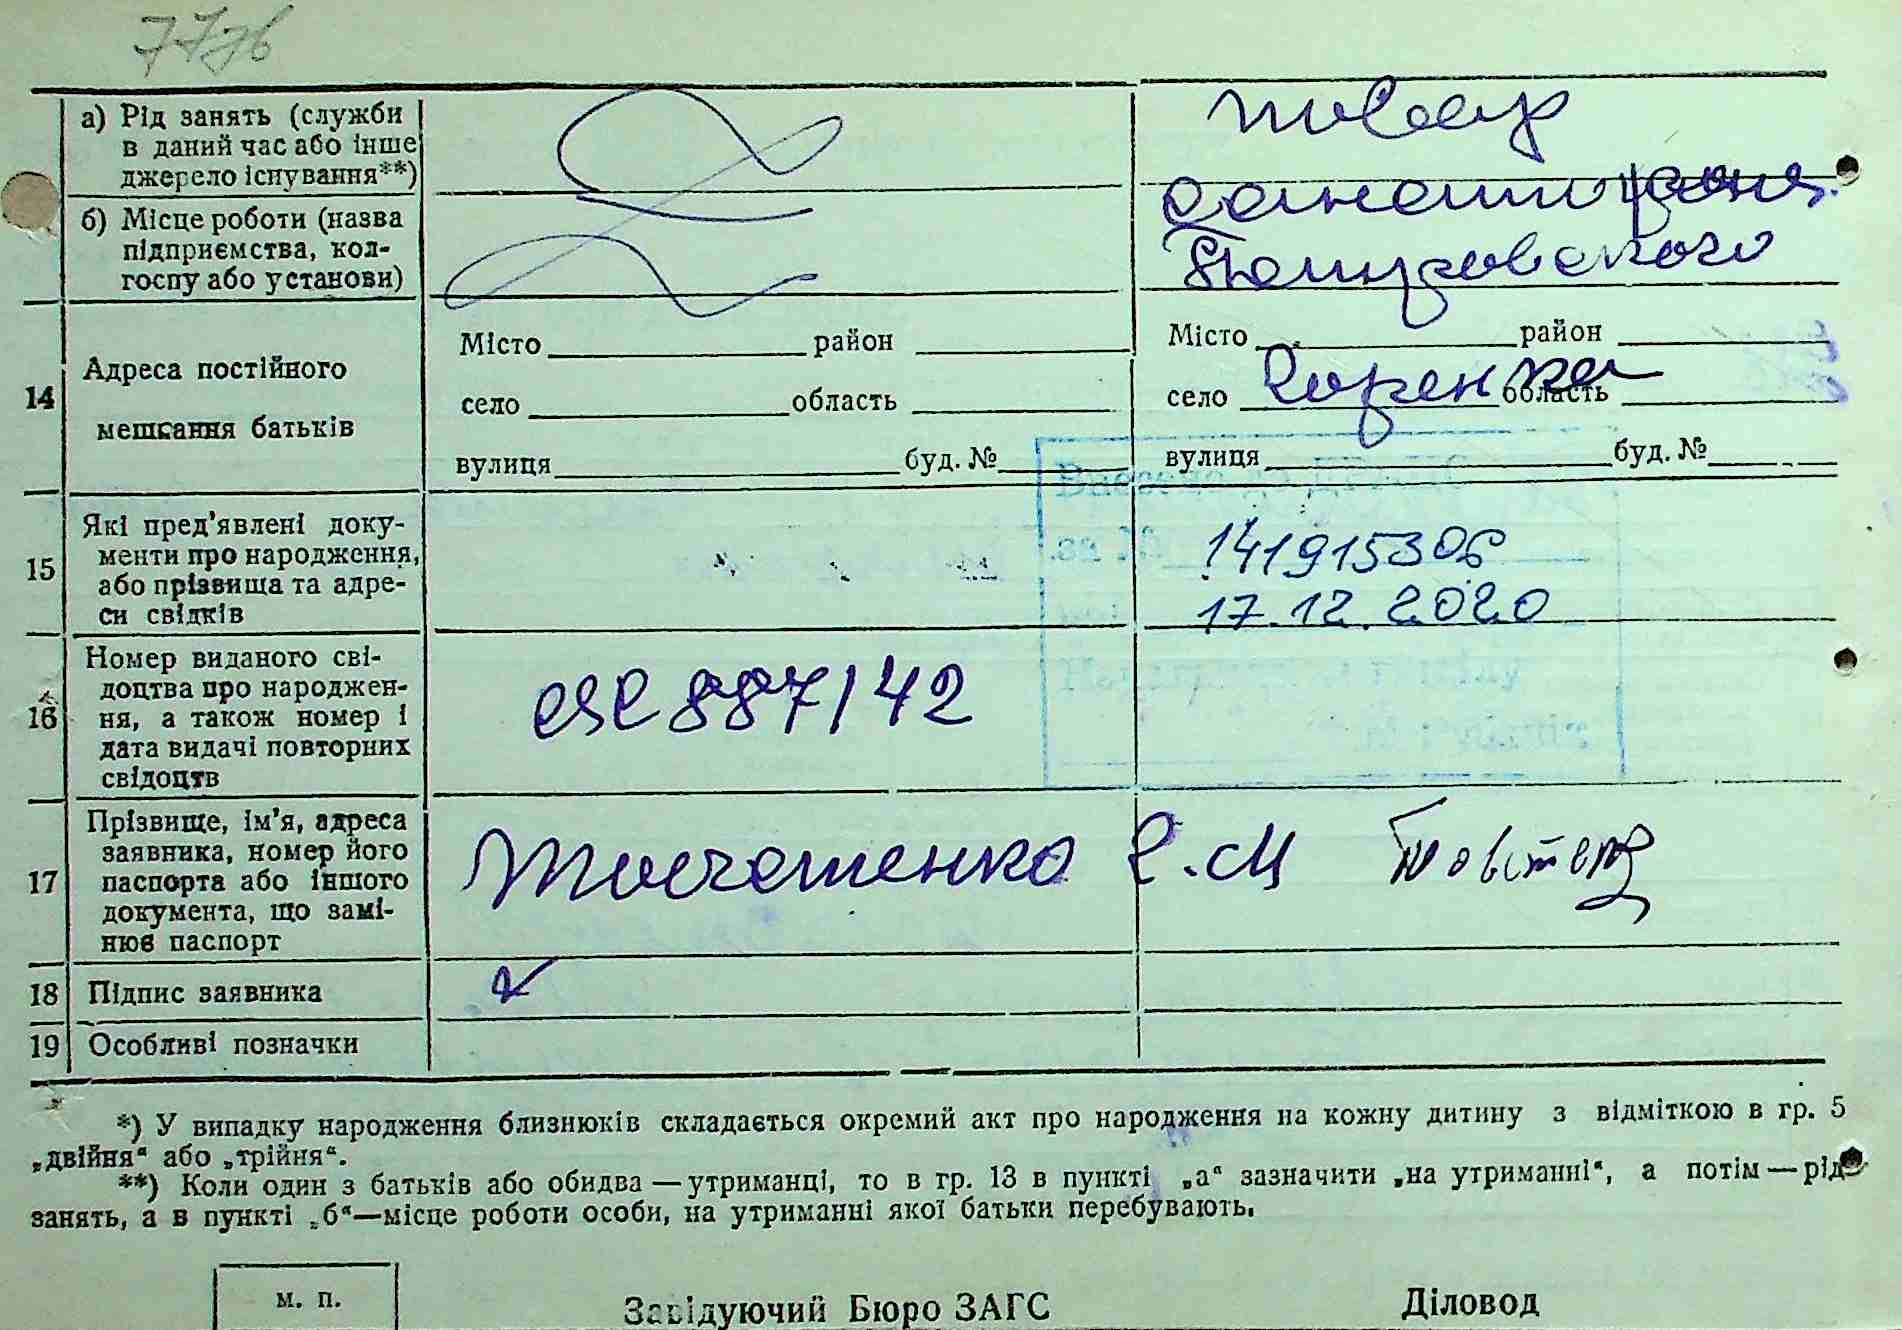 а) Рід занять (служби
в даний час або інше
джерело існування**)
повар
б) Місце роботи (назва
підприємства, кол-
госпу або установи)
санатория
Петровского
14 Адреса постійного
мешкання батьків
Місто район
село область
вулиця буд. №
Місто район
село Горенка область
вулиця буд. №
15 Які пред'явлені доку-
менти про народження,
або прізвища та адре-
си свідків
за №
141915306
17.12.2020
16 Номер виданого сві-
доцтва про народжен-
ня, а також номер і
дата видачі повторних
свідоцтв
887142
17 Прізвище, ім'я, адреса
заявника, номер його
паспорта або іншого
документа, що замі-
нює паспорт
18 Підпис заявника
19 Особливі позначки
*) У випадку народження близнюків складається окремий акт про народження на кожну дитину з відміткою в гр. 5
„двійня“ або „трійня“.
**) Коли один з батьків або обидва — утриманці, то в гр. 13 в пункті „а“ зазначити „на утриманні“, а потім — рід
занять, а в пункті „б“ — місце роботи особи, на утриманні якої батьки перебувають.
м. п.
Завідуючий Бюро ЗАГС
Діловод